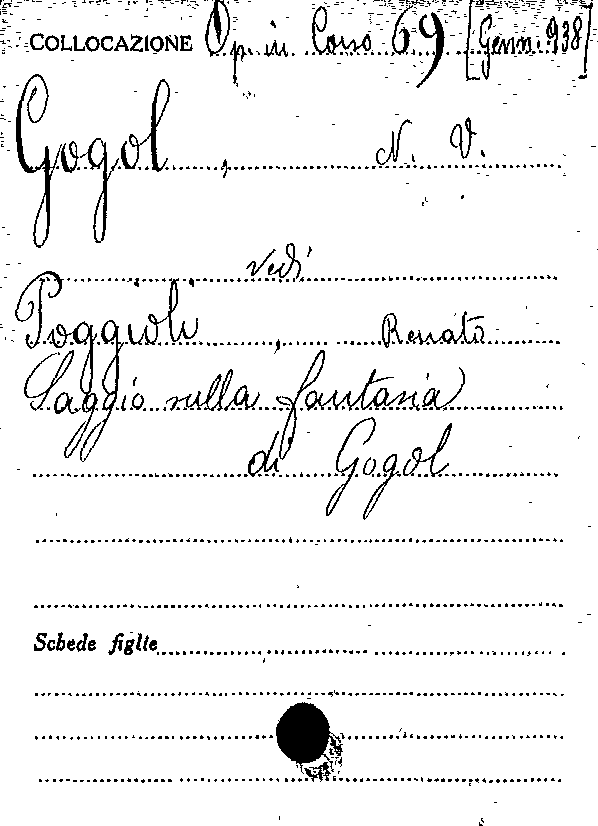 COLLOCAZIONE Op. in Corso 69 [Genn. 938]
Gogol, N. V.
Vedi
Poggioli, Renato
Saggio sulla fantasia
di Gogol
Schede figlie